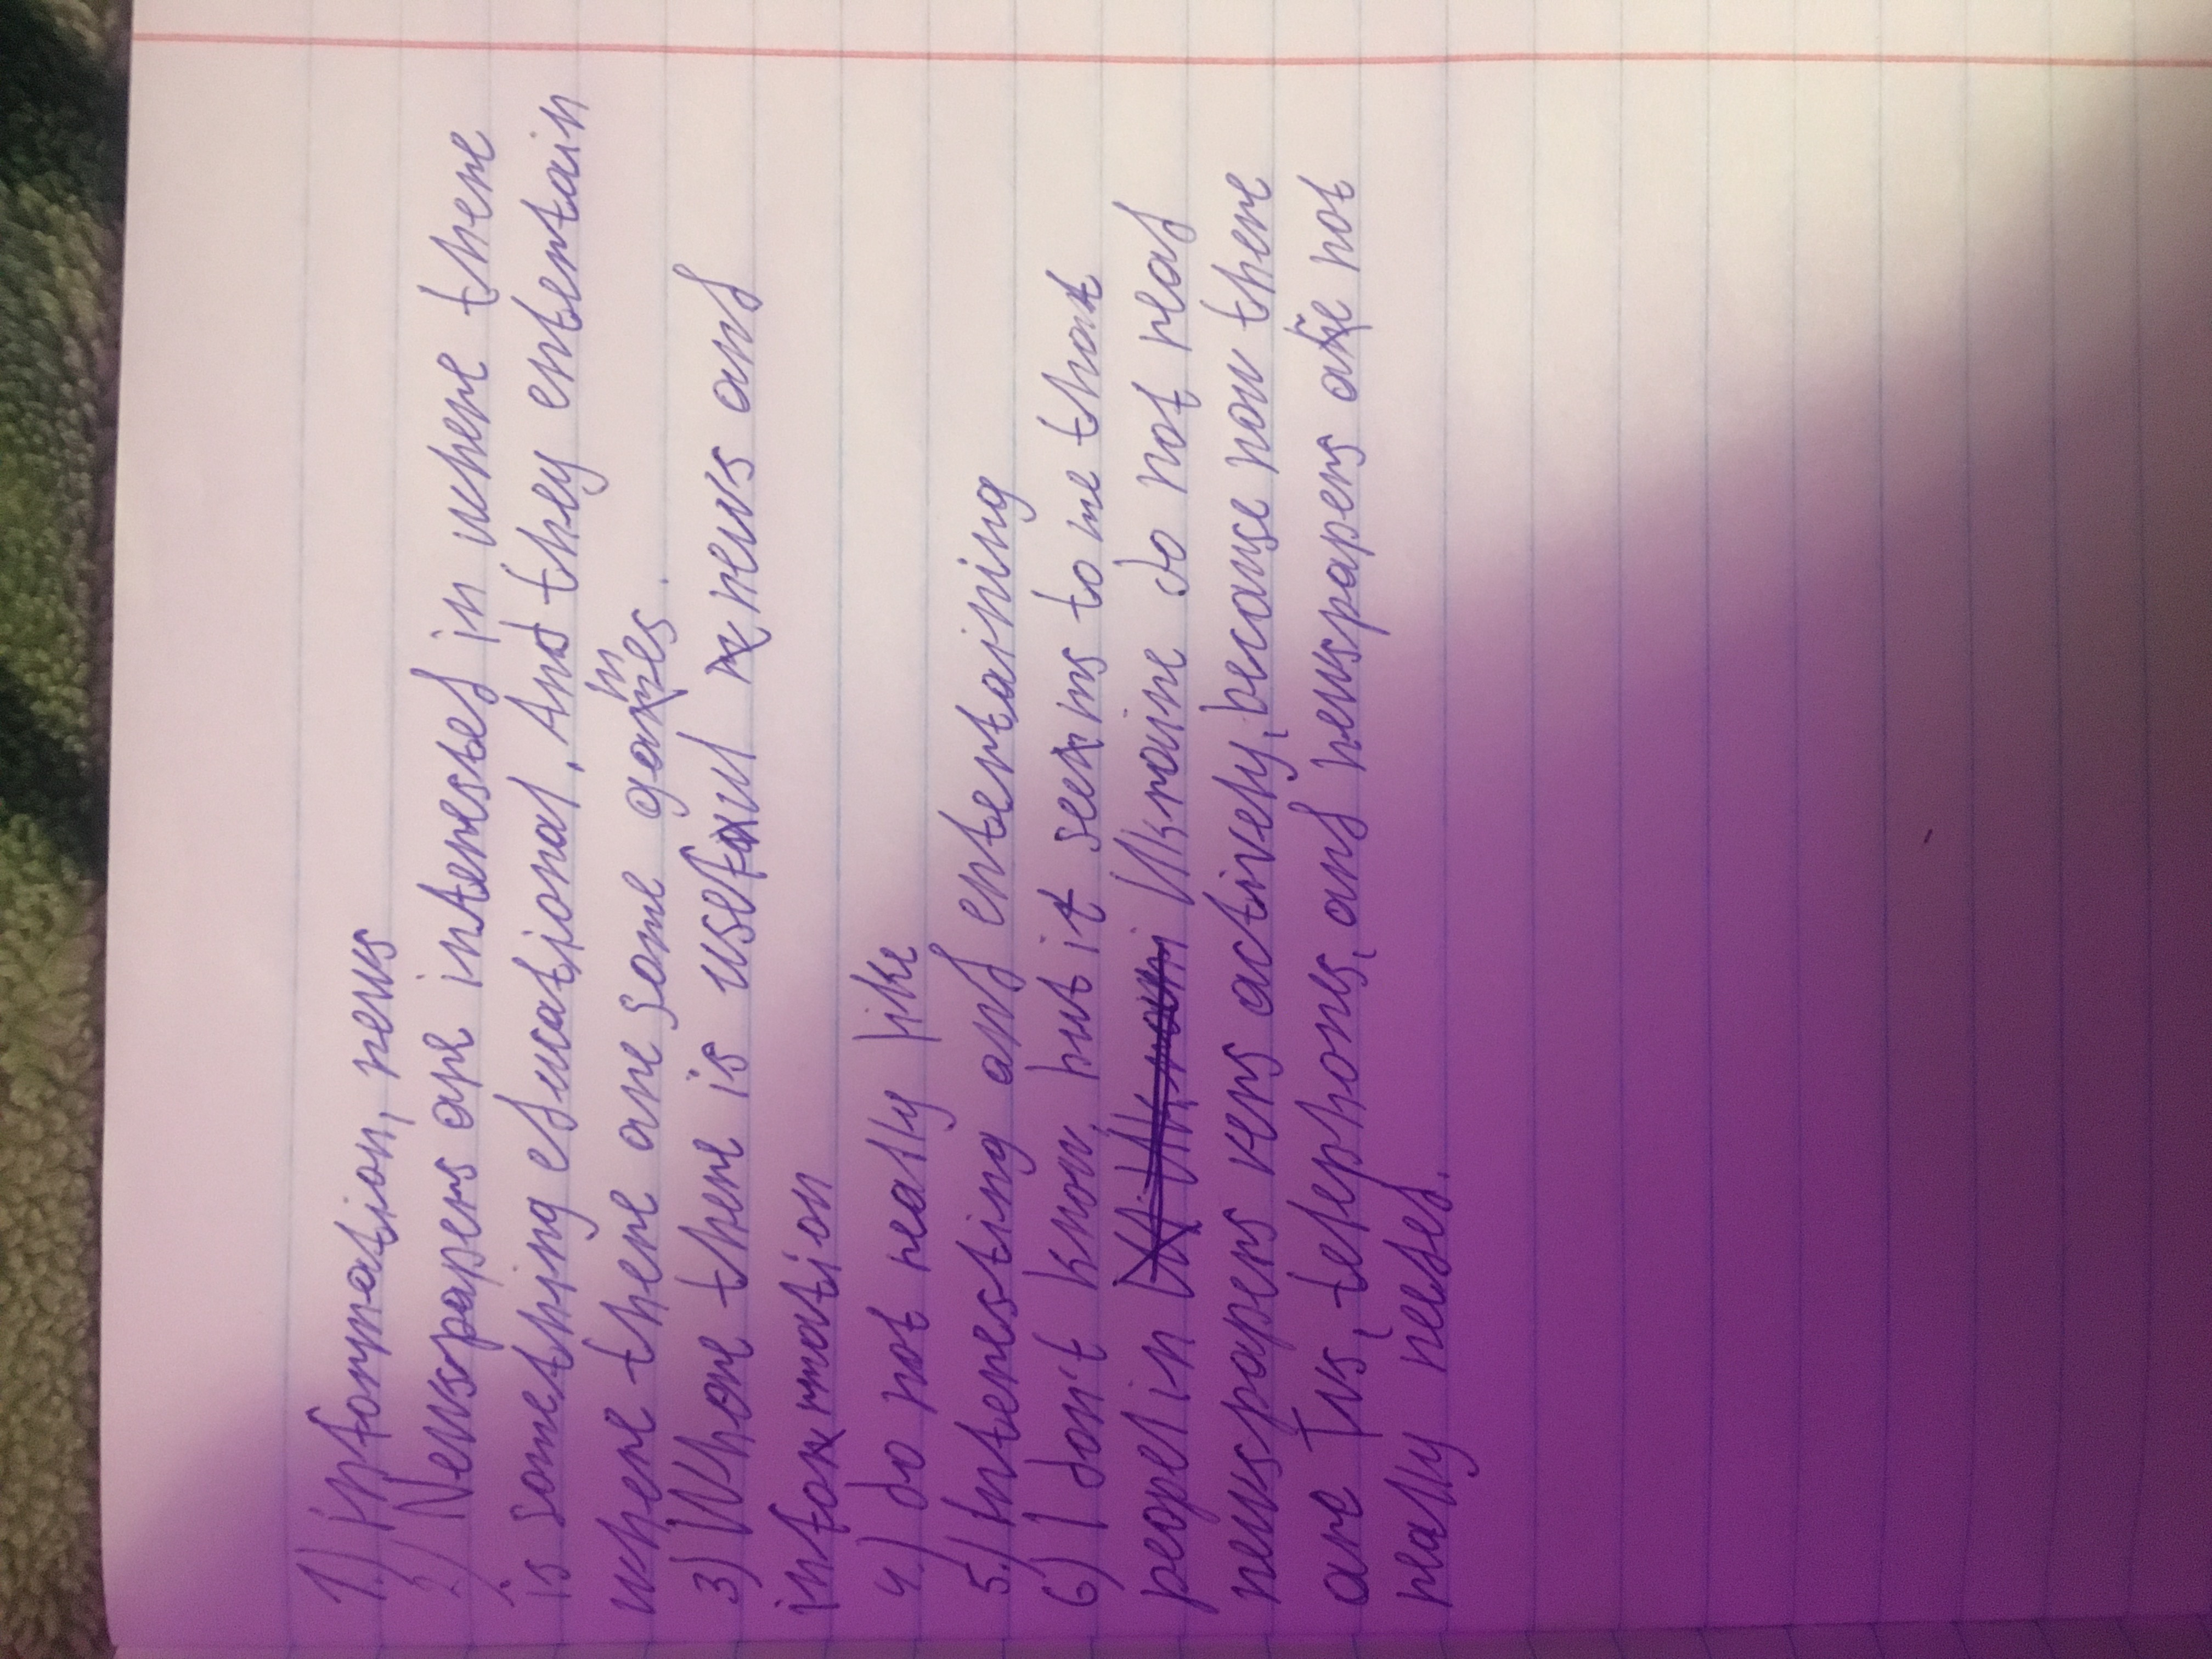 1.) information, news
2.) Newspapers are interested in where there
is something educational. And they entertain
where there are some games.
3) Whore there is useful news and
information
4.) do not really like
5.) Interesting and entertaining
6) I don't know, but it seems to me that
peopel in Ukraine do not read
newspapers very actively, because now there
are TVs, telephons, and newspapers are not
really needed.